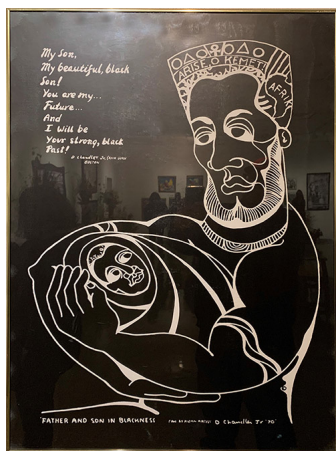 My Son,
My beautiful, black
Son!
You are my...
Future...
And
I will be
Your strong, black
Past!
D Chandler Jr.
BOSTON
ARISE, O KEMET!
AFRIKA
"FATHER AND SON IN BLACKNESS D Chandler Jr '70